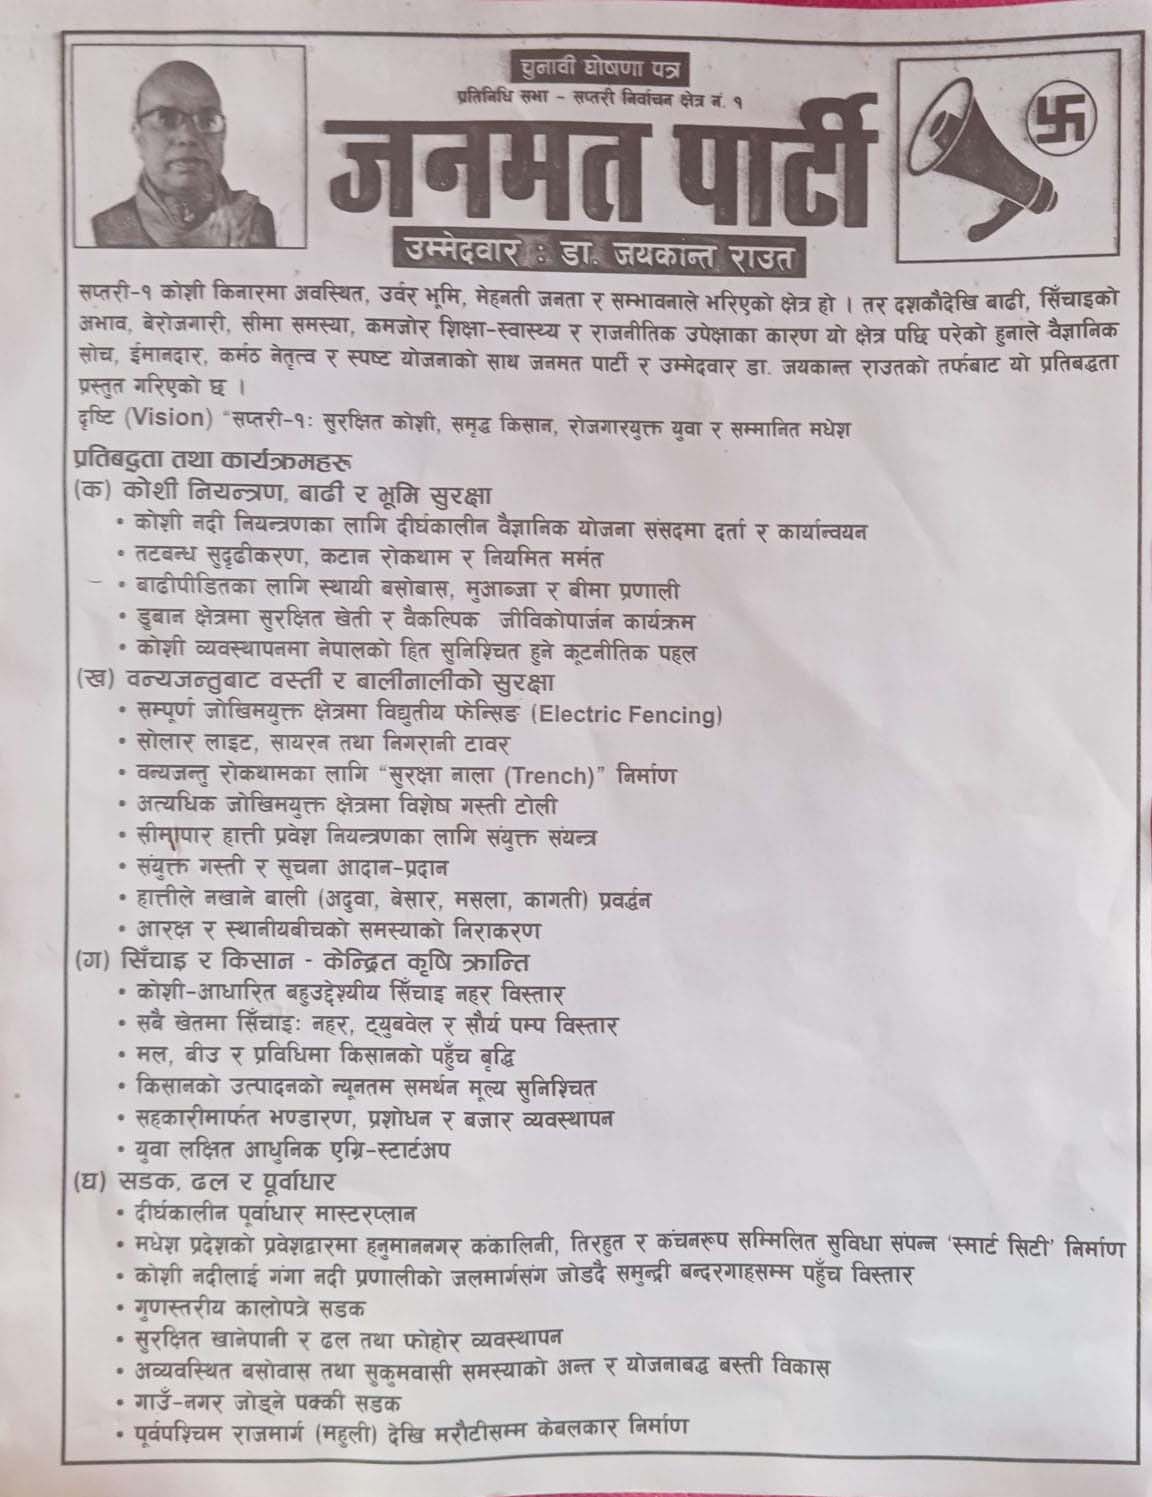 चुनावी घोषणा पत्र
प्रतिनिधि सभा - सप्तरी निर्वाचन क्षेत्र नं. १
जनमत पार्टी
उम्मेदवार : डा. जयकान्त राउत
सप्तरी-१ कोशी किनारमा अवस्थित, उर्वर भूमि, मेहनती जनता र सम्भावनाले भरिएको क्षेत्र हो । तर दशकौंदेखि बाढी, सिँचाइको
अभाव, बेरोजगारी, सीमा समस्या, कमजोर शिक्षा-स्वास्थ्य र राजनीतिक उपेक्षाका कारण यो क्षेत्र पछि परेको हुनाले वैज्ञानिक
सोच, ईमानदार, कर्मठ नेतृत्व र स्पष्ट योजनाको साथ जनमत पार्टी र उम्मेदवार डा. जयकान्त राउतको तर्फबाट यो प्रतिबद्धता
प्रस्तुत गरिएको छ ।
दृष्टि (Vision) “सप्तरी-१: सुरक्षित कोशी, समृद्ध किसान, रोजगारयुक्त युवा र सम्मानित मधेश
प्रतिबद्धता तथा कार्यक्रमहरू
(क) कोशी नियन्त्रण, बाढी र भूमि सुरक्षा
• कोशी नदी नियन्त्रणका लागि दीर्घकालीन वैज्ञानिक योजना संसदमा दर्ता र कार्यान्वयन
• तटबन्ध सुदृढीकरण, कटान रोकथाम र नियमित मर्मत
• बाढीपीडितका लागि स्थायी बसोबास, मुआब्जा र बीमा प्रणाली
• डुबान क्षेत्रमा सुरक्षित खेती र वैकल्पिक जीविकोपार्जन कार्यक्रम
• कोशी व्यवस्थापनमा नेपालको हित सुनिश्चित हुने कूटनीतिक पहल
(ख) वन्यजन्तुबाट वस्ती र बालीनालीको सुरक्षा
• सम्पूर्ण जोखिमयुक्त क्षेत्रमा विद्युतीय फेन्सिङ (Electric Fencing)
• सोलार लाइट, सायरन तथा निगरानी टावर
• वन्यजन्तु रोकथामका लागि “सुरक्षा नाला (Trench)” निर्माण
• अत्यधिक जोखिमयुक्त क्षेत्रमा विशेष गस्ती टोली
• सीमापार हात्ती प्रवेश नियन्त्रणका लागि संयुक्त संयन्त्र
• संयुक्त गस्ती र सूचना आदान-प्रदान
• हात्तीले नखाने बाली (अदुवा, बेसार, मसला, कागती) प्रवर्द्धन
• आरक्ष र स्थानीयबीचको समस्याको निराकरण
(ग) सिँचाइ र किसान - केन्द्रित कृषि क्रान्ति
• कोशी-आधारित बहुउद्देश्यीय सिँचाइ नहर विस्तार
• सबै खेतमा सिँचाइः नहर, ट्युबवेल र सौर्य पम्प विस्तार
• मल, बीउ र प्रविधिमा किसानको पहुँच बृद्धि
• किसानको उत्पादनको न्यूनतम समर्थन मूल्य सुनिश्चित
• सहकारीमार्फत भण्डारण, प्रशोधन र बजार व्यवस्थापन
• युवा लक्षित आधुनिक एग्रि-स्टार्टअप
(घ) सडक, ढल र पूर्वाधार
• दीर्घकालीन पूर्वाधार मास्टरप्लान
• मधेश प्रदेशको प्रवेशद्वारमा हनुमाननगर कंकालिनी, तिरहुत र कंचनरूप सम्मिलित सुविधा संपन्न ‘स्मार्ट सिटी’ निर्माण
• कोशी नदीलाई गंगा नदी प्रणालीको जलमार्गसंग जोडदै समुन्द्री बन्दरगाहसम्म पहुँच विस्तार
• गुणस्तरीय कालोपत्रे सडक
• सुरक्षित खानेपानी र ढल तथा फोहोर व्यवस्थापन
• अव्यवस्थित बसोवास तथा सुकुमवासी समस्याको अन्त र योजनाबद्ध बस्ती विकास
• गाउँ-नगर जोड्ने पक्की सडक
• पूर्वपश्चिम राजमार्ग (महुली) देखि मरौटीसम्म केबलकार निर्माण